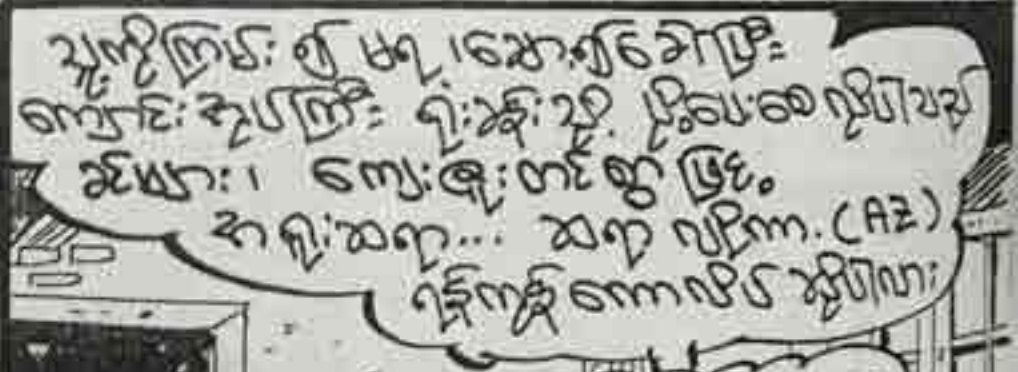 သူ့ကိုကြိမ်း၍ မရ၊ သော့၍ခေါ်ပြီး
ကျောင်းအုပ်ကြီး ရုံးခန်းသို့ ပို့ပေးစေလိုပါသည်
ခင်ဗျား၊ ကျေးဇူးတင်စွာဖြင့်
အရူးဆရာ... ဆရာ (AZ)
ရန်ကုန် ကောလိပ် သို့ပါလား